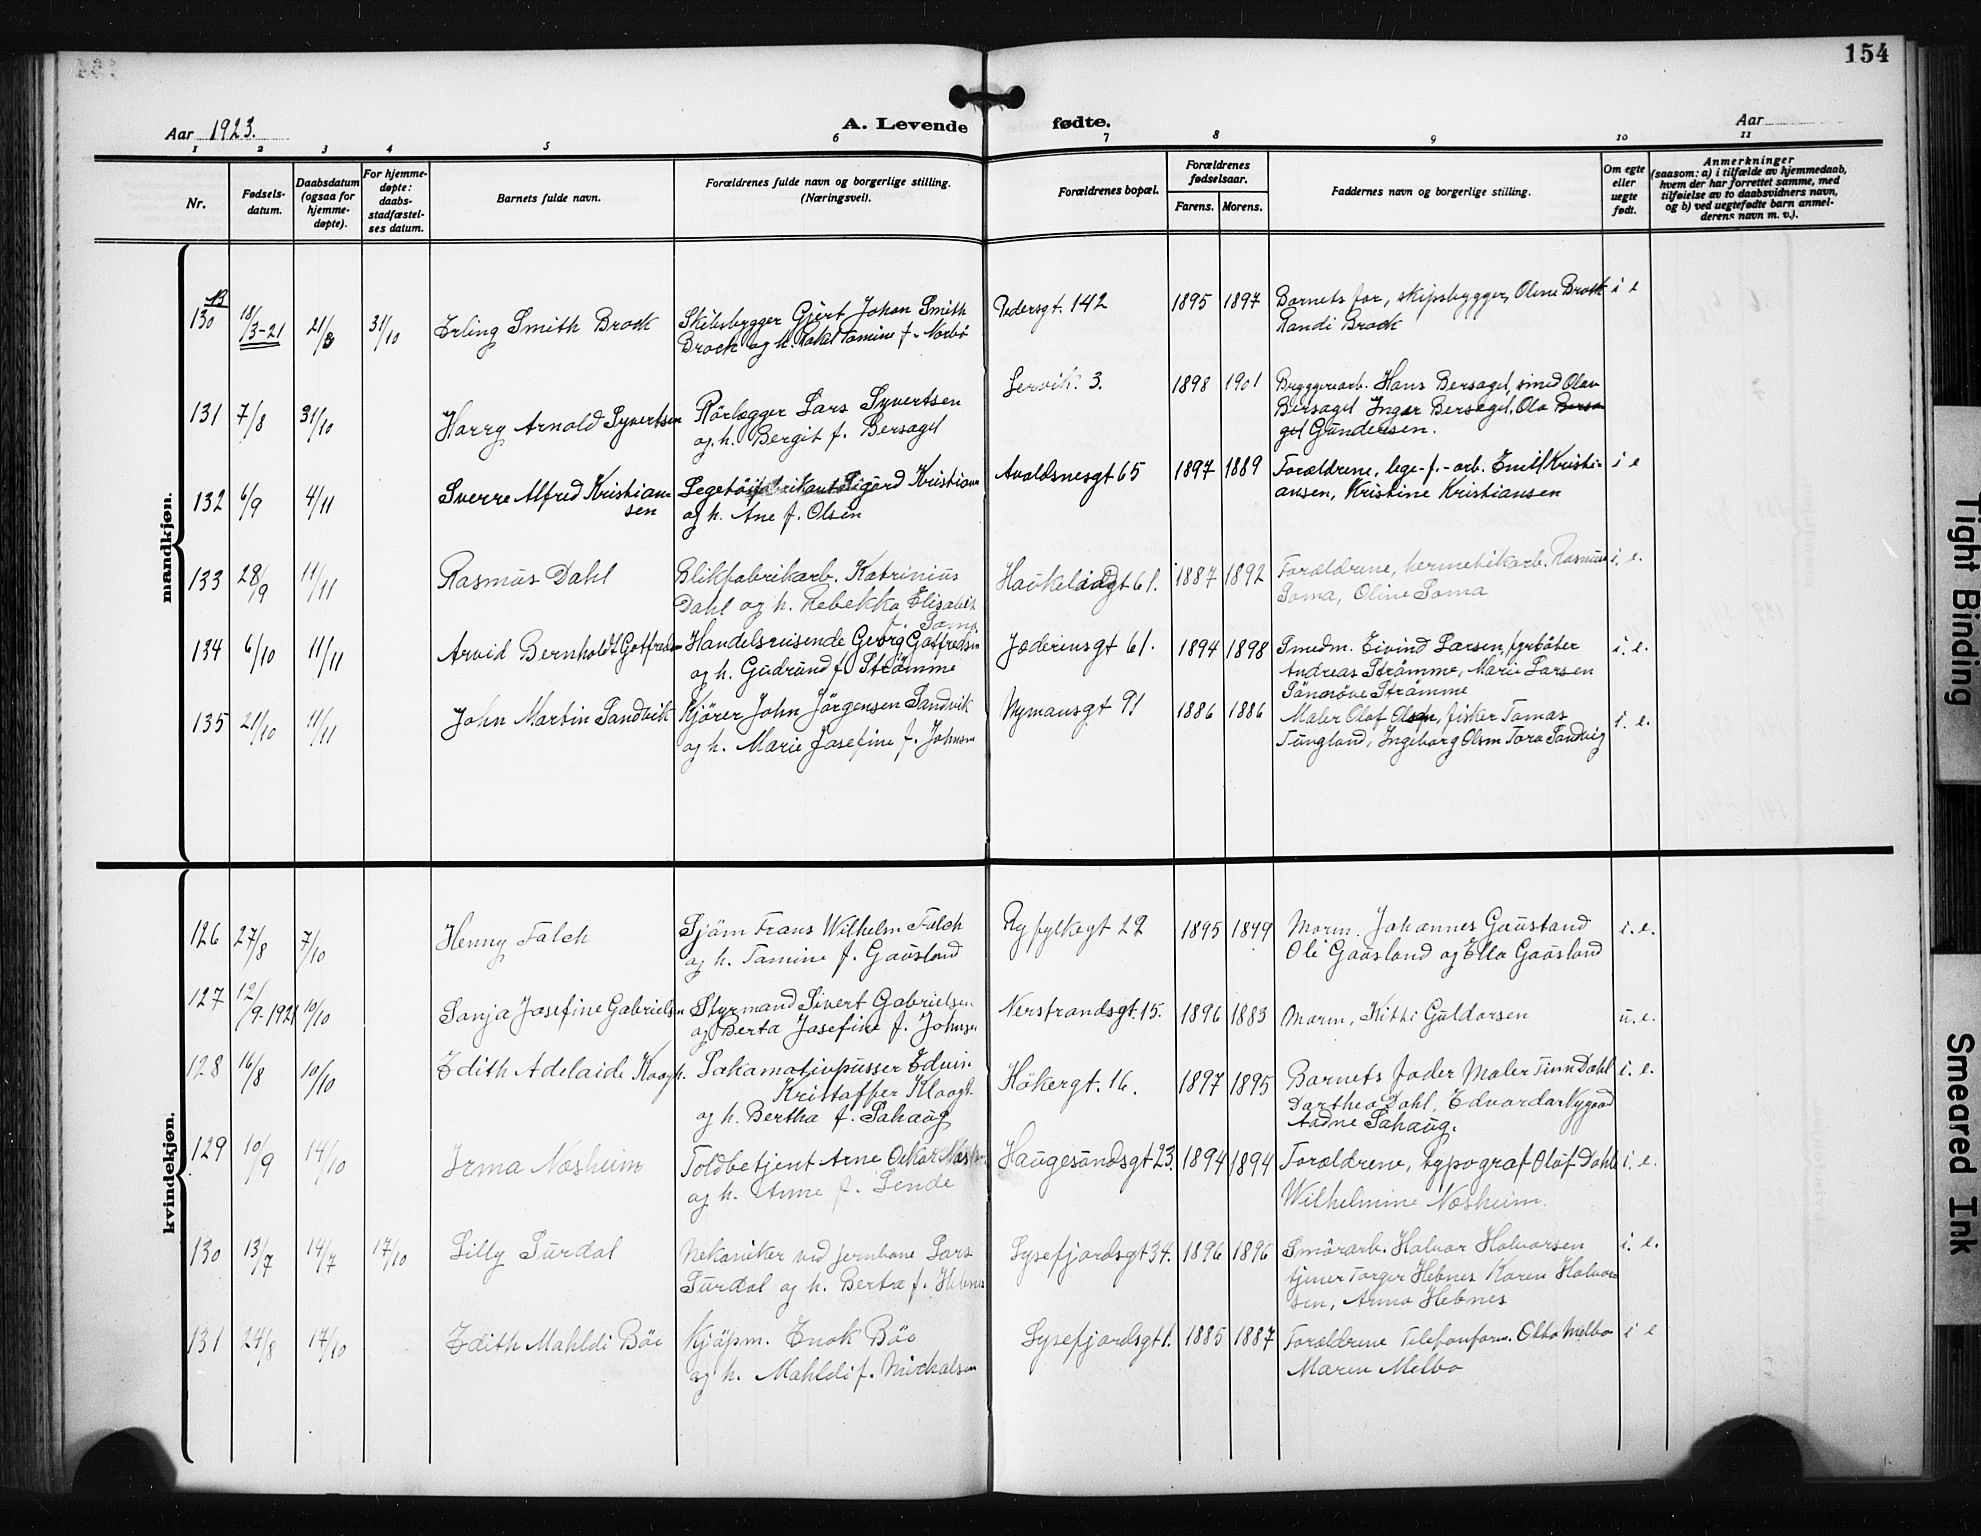 154
Aar 1923.
A. Levende fødte.
Aar
1 2 3 4 5 6 7 8 9 10 11
Nr.
Fødsels-
datum.
Daabsdatum
(ogsaa for
hjemme-
døpte).
For hjemme-
døpte:
daabs-
stadfæstel-
ses datum.
Barnets fulde navn.
Forældrenes fulde navn og borgerlige stilling.
(Næringsvei).
Forældrenes bopæl.
Forældrenes
fødselsaar.
Farens. Morens.
Faddernes navn og borgerlige stilling.
Om egte
eller
uegte
født.
Anmerkninger
(saasom: a) i tilfælde av hjemmedaab,
hvem der har forrettet samme, med
tilføielse av to daabsvidners navn,
og b) ved uegtefødte barn anmel-
derens navn m. v.).
mandkjøn.
B
130 18/3-21 21/3 31/10 Erling Smith Brock
Skibsbygger Gjert Johan Smith
Brock og h. Rakel Tomine f. Norbö
Pedersgt. 142 1895 1897
Barnets far, skipsbygger, Oline Brock
Randi Brock
i e
131 7/8 31/10 Harry Arnold Syvertsen
Rörlægger Lars Syvertsen
og h. Bergit f. Bersagel
Lervik. 3. 1898 1901
Bryggeriarb. Hans Bersagel, smed Olav
Bersagel Inger Bersagel, Ola Bersa
gel Gundersen.
132 6/9 4/11 Sverre Alfred Kristian-
sen
Legetöifabrikant Sigurd Kristians
og h. Ane f. Olsen
Avaldsnesgt 65 1897 1889
Forældrene, lege-f.-arb. Emil Kristi-
ansen, Kristine Kristiansen
i e
133 28/9 11/11 Rasmus Dahl
Blikfabrikarb. Katrinius
Dahl og h. Rebekka Elisabet
f. Soma
Haukeligt 61. 1887 1892
Forældrene, hermetikarb. Rasmus
Soma, Oline Soma
i. e.
134 6/10 11/11 Arvid Bernholdt Gotfredsen
Handelsreisende Georg Gotfredsen
og h. Gudrund f. Strömme
Jæderensgt 61. 1894 1898
Smedm. Eivind Larsen, fyrböter
Andreas Strömme, Marie Larsen
Sönnöve Strömme
i. e.
135 21/10 11/11 John Martin Sandvik
Kjörer John Jörgensen Sandvik
og h. Marie Josefine f. Johnsen
Nymansgt 91 1886 1886
Maler Olaf Olsen, fisker Tomas
Tungland, Ingeborg Olsen Tora Sandvig
i. e.
kvindekjøn.
126 27/8 7/10 Henny Falch
Sjöm Frans Wilhelm Falch
og h. Tomine f. Gausland
Ryfylkegt 22 1895 1899
Morm. Johannes Gausland
Ole Gausland og Ella Gausland
i. e.
127 12/9-1921 10/10 Sonja Josefine Gabrielsen
Styrmand Sivert Gabrielsen
og Berta Josefine f. Johnsen
Nerstrandsgt. 15. 1896 1883
Morm, Kithi Guldorsen
u. e.
128 16/8 10/10 Edith Adelaide Kloogh.
Lokomotivpusser Edvin
Kristoffer Kloogh
og h. Bertha f. Sahaug
Hökergt. 16. 1897 1895
Barnets fader Maler Finn Dahl
Dorthea Dahl, Edvarda Nygaard
Aadne Sahaug.
i. e.
129 10/9 14/10 Irma Næsheim
Toldbetjent Arne Oskar Næsheim
og h. Anne f. Lende
Haugesundsgt 23. 1894 1894
Forældrene, typograf Olaf Dahl
Wilhelmine Næsheim
i. e.
130 13/7 14/7 17/10 Lilly Surdal
Mekaniker ved jernbane Lars
Surdal og h. Berta f. Hebnes
Lysefjordsgt 34. 1896 1896
Smörarb. Halvor Halvorsen
tjener Torger Hebnes Karen Halvor-
sen, Anna Hebnes
i. e.
131 24/8 14/10 Edith Mahldi Böe
Kjöpm. Enok Böe
og h. Mahldi f. Mickalsen
Lysefjordsgt 1. 1885 1887
Forældrene Telefonform. Otto Melbo
Maren Melbo
i e
Tight Binding
Smeared Ink